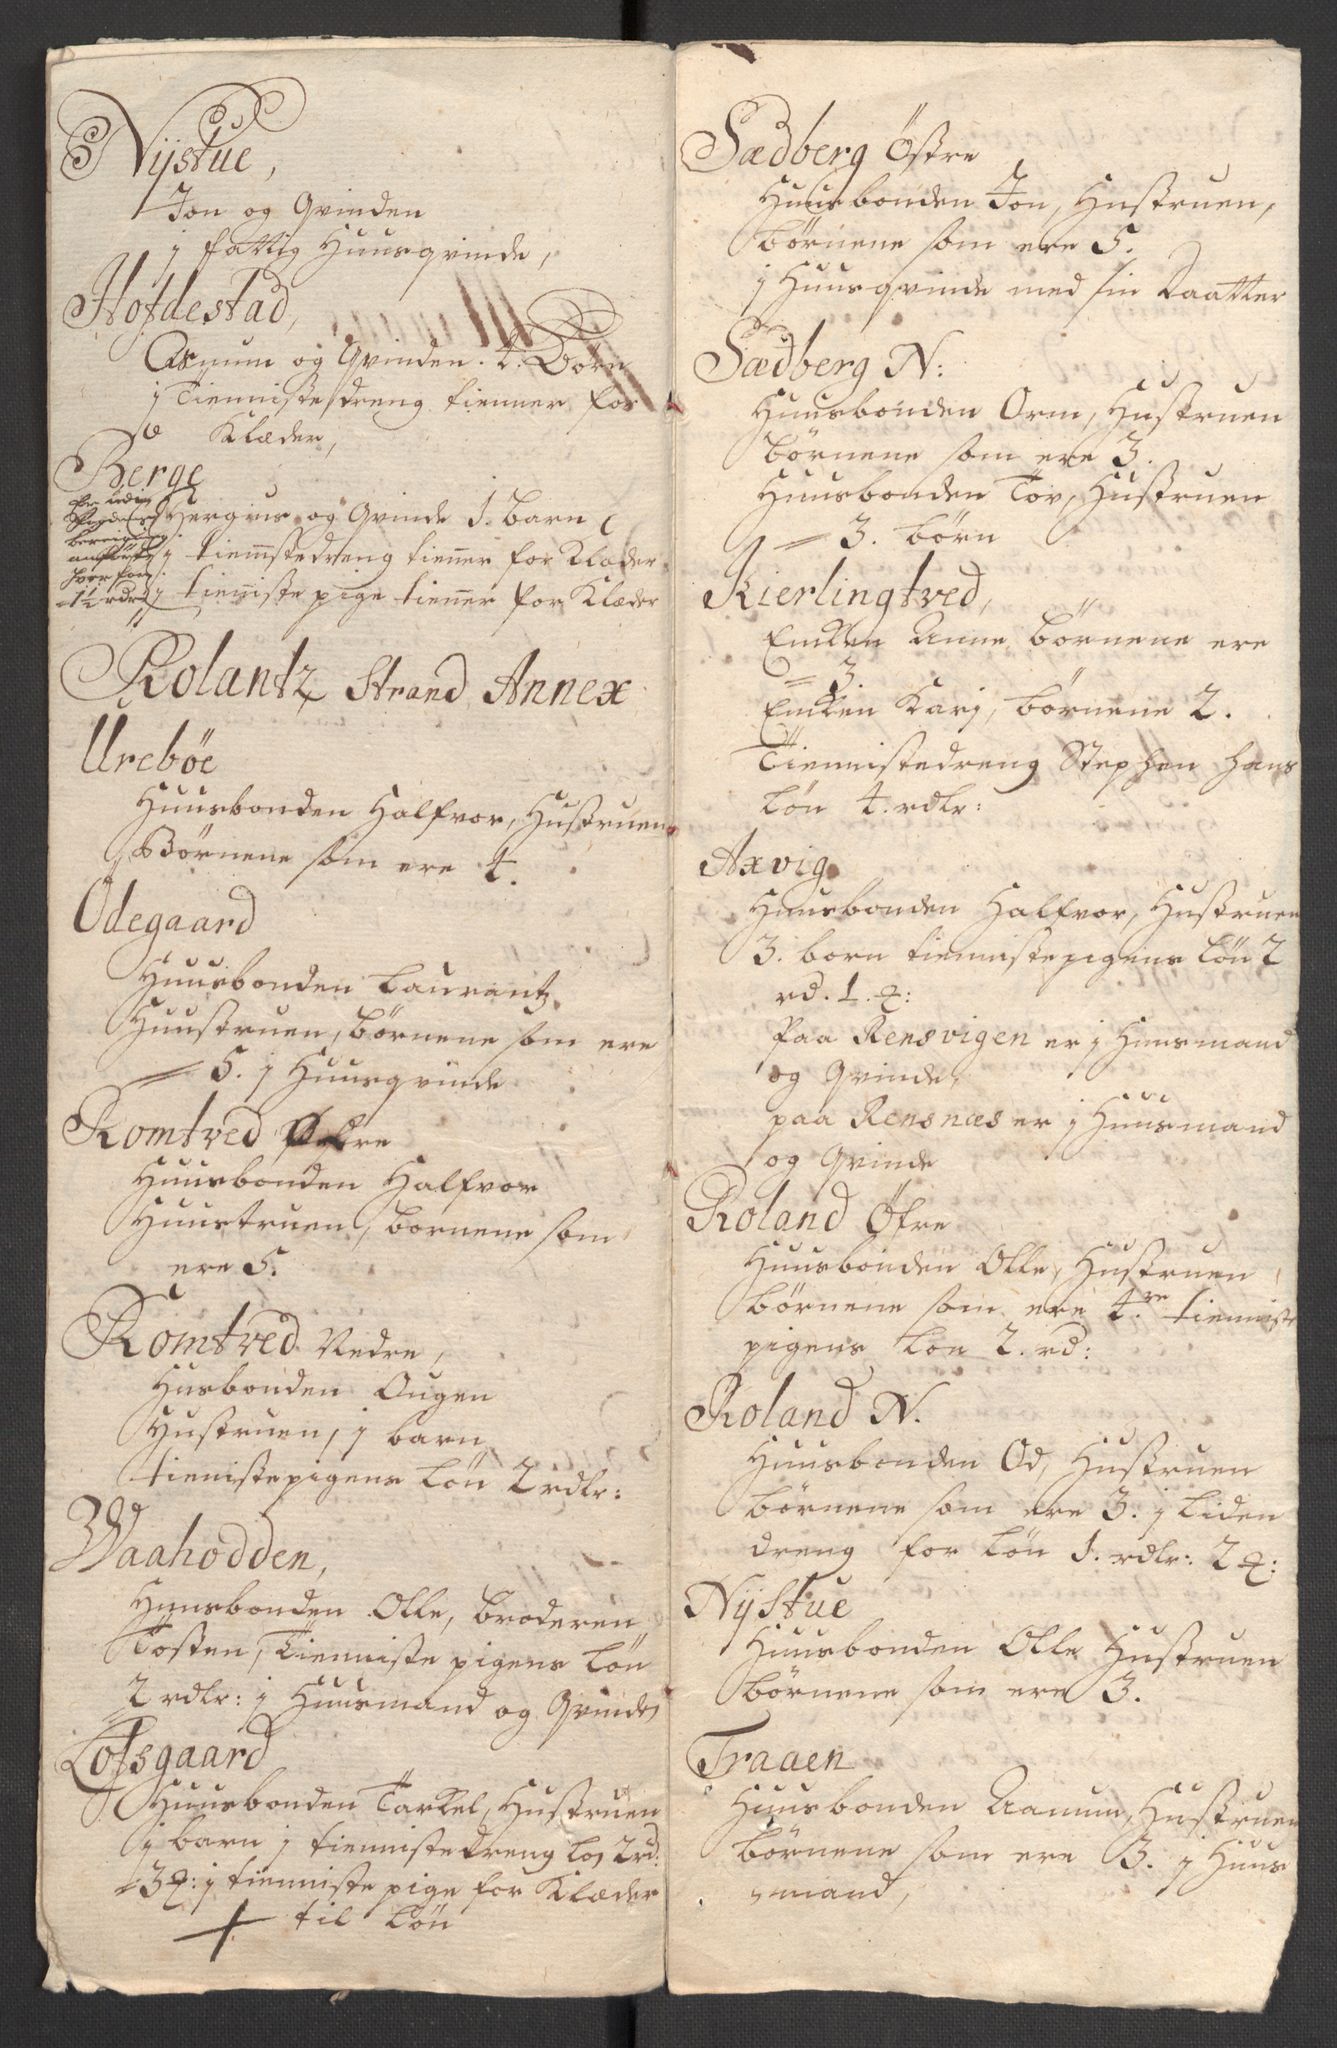 Nijstue,
Jon og Qvinden
j fattig Huusqvinde,
Hofdestad,
Asnum og Qvinden. 4. Børn
j Tienniste dreng tienner for
Klæder,
Berge
Hergius og Qvinde 1. barn
j tiennistedreng tienner for Klæder
j tienniste pige tienner for Klæder
hvorfor
1½ rdr
Rolantz Strand Annex
Urebøe
Huusbonden Halfvor, Hustruen
Børnene som ere 4.
Odegaard
Huusbonden Laurantz
Huustruen, børnene som ere
5. j Huusqvinde
Romtved Øfre
Huusbonden Halfvor
Huustruen, børnene som
ere 5.
Romtved Nedre,
Husbonden Ougen
Hustruen, j barn
tienistepigens Løn 2 rdlr:
Waahodden,
Huusbonden Olle, broderen
Tosten, Tienniste pigens Løn
2 rdlr: j Huusmand og Qvinde
Lofsgaard
Huusbonden Tarkel, Hustruen
j barn j tiennistedreng Løn 2 rd.
3 q: j tienniste pige for Klæder
til Løn
Sædberg Östre
Huusbonden Jon, Hustruen,
børnene som ere 5.
j Huusqvinde med sin Daatter
Sædberg N:
Huusbonden Orm, Hustruen
børnene som ere 3.
Huusbonden Tov, Hustruen
3. børn
Kierlingtved,
Encken Anne børnene ere
3.
Encken Karj, børnene 2.
Tiennistedreng Stephen hans
Løn 4. rdlr:
Axvig
Huusbonden Halfvor, Hustruen
3. børn tiennistepigens Løn 2
rd. 1. q:
Paa Rensvigen er j Huusmand
og Qvinde,
paa Rensnæs er j Huusmand
og Qvinde
Roland Öfre
Huusbonden Olle, Hustruen
børnene som ere 4.re tienniste
pigens Løn 2. rd:
Roland N.
Huusbonden Od, Hustruen
børnene som ere 3. j Liden
dreng for Løn 1. rdlr: 2 q:
Nijstue
Huusbonden Olle Hustruen
børnene som ere 3.
Traaen
Huusbonden Aanum, Hustruen
børnene som ere 3. j Huus
mand,